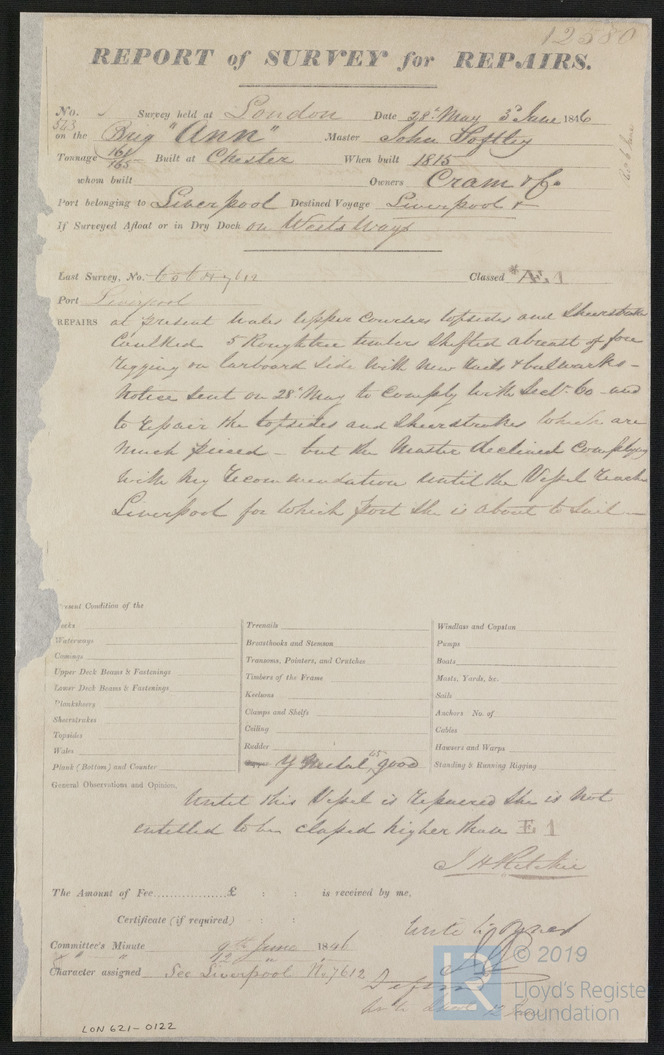 12580
REPORT of SURVEY for REPAIRS.
No. 543 Survey held at London Date 28th May 3d June 1846
on the Brig "Ann" Master John
Tonnage 161/165 Built at Chester When built 1815
whom built Owners Cram & Co
Port belonging to Liverpool Destined Voyage Liverpool &
If Surveyed Afloat or in Dry Dock on Wests Ways
Last Survey, No. 7612 Classed *Æ1
Port Liverpool
REPAIRS at present Wales Upper Courses topsides and Sheerstrakes
Caulked 5 Roughtree timbers Shifted abreast of fore
Rigging on Larboard Side with New Rails & bulwarks -
Notice Sent on 28th May to Comply with Sect. 60 - and
to repair the topsides and Sheerstrakes Which are
Much pieced - but the Master declined Complying
With my Recommendation Until the Vessel reach
Liverpool for which Port She is about to Sail -
Present Condition of the
Decks
Waterways
Comings
Upper Deck Beams & Fastenings
Lower Deck Beams & Fastenings
Planksheers
Sheerstrakes
Topsides
Wales
Plank (Bottom) and Counter
Treenails
Breasthooks and Stemson
Transoms, Pointers, and Crutches
Timbers of the Frame
Keelsons
Clamps and Shelfs
Ceiling
Rudder
Y Metal 45 good
Windlass and Capstan
Pumps
Boats
Masts, Yards, &c.
Sails
Anchors No. of
Cables
Hawsers and Warps
Standing & Running Rigging
General Observations and Opinion,
Until this Vessel is Repaired She is Not
entitled to be classed higher than E 1
J H Ritchie
The Amount of Fee £ : : is received by me,
Certificate (if required) : :
Write to Owners
Committee's Minute 9th June 1846
12 " "
Character assigned See Liverpool No 7612
© 2019
Lloyd's Register
Foundation
LR
LON 621-0122